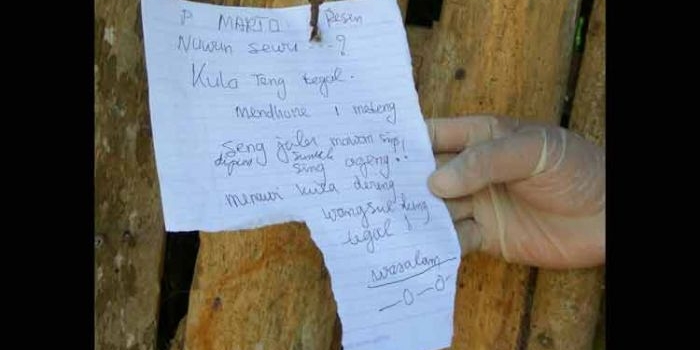 P MARTO Pesen
Nuwun sewu - - ?
Kulo Teng tegal.
Mendhone 1 meteng
seng jaler mawon
dipun suntik
sing ageng..
menawi kula dereng
wangsul kung
tegal !
wasalam